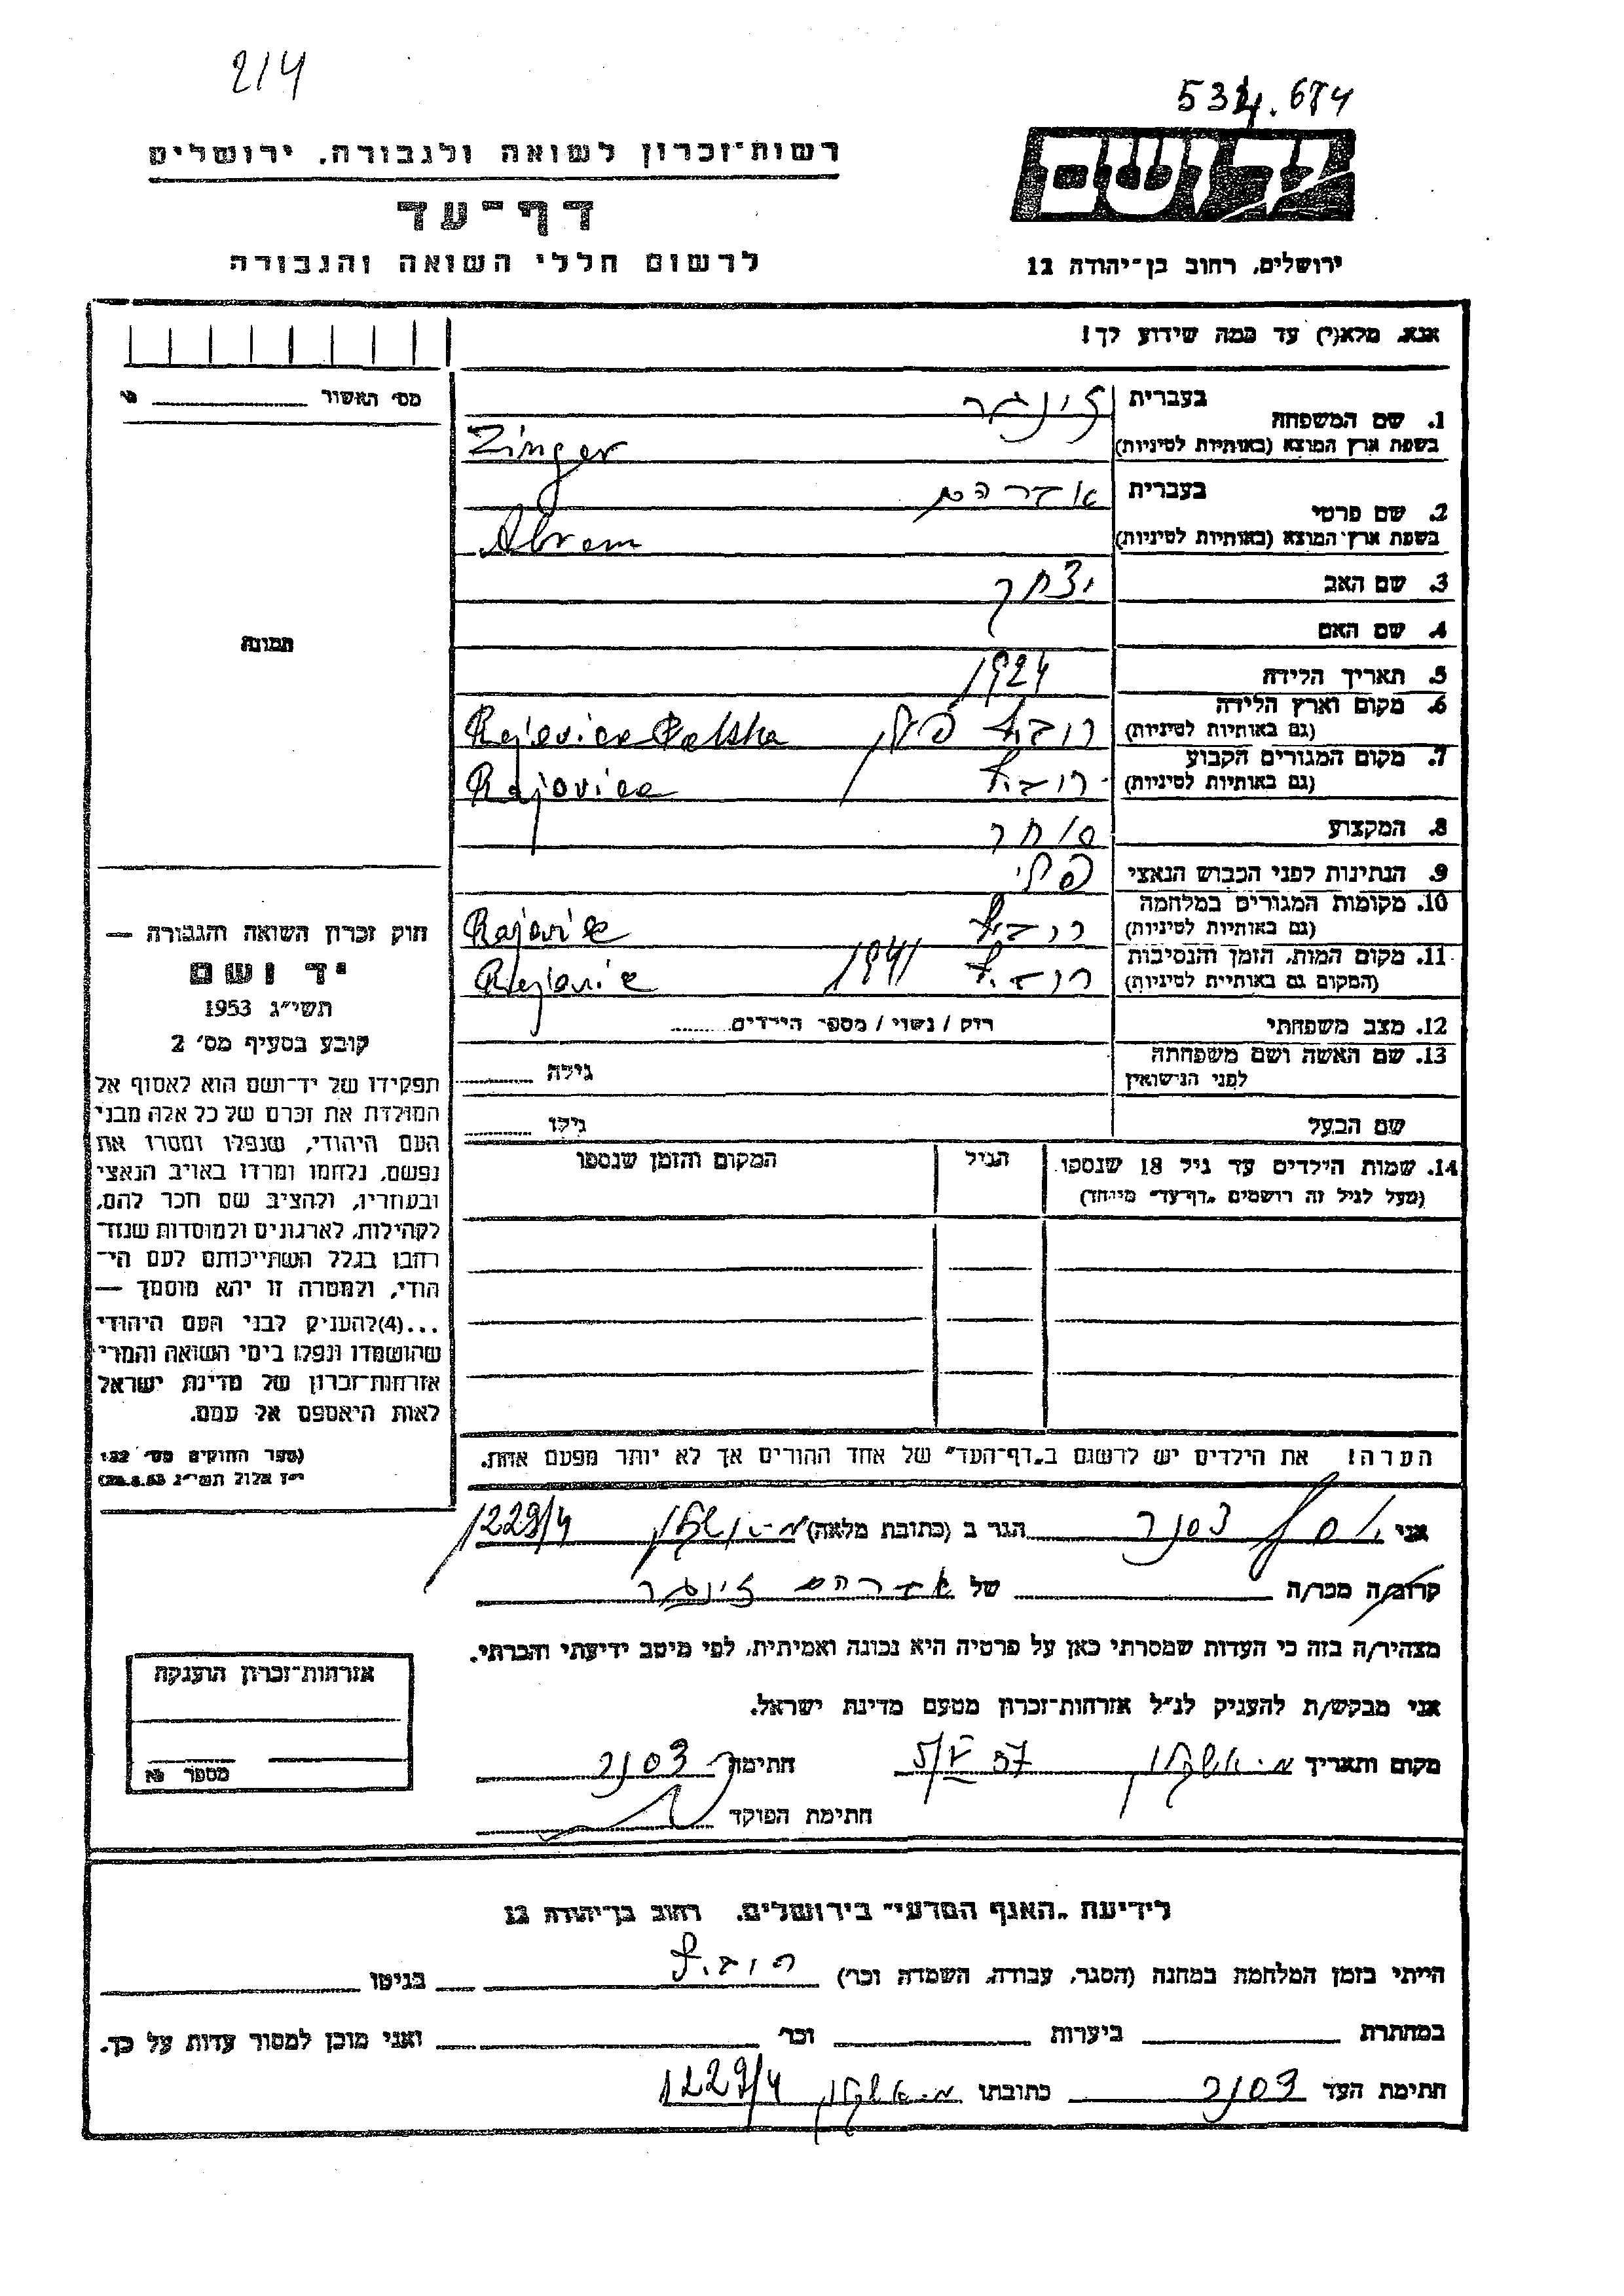 214
534.674
רשות־זכרון לשואה ולגבורה, ירושלים
יד ושם
דף־עד
לרשום חללי השואה והגבורה
ירושלים, רחוב בן־יהודה 12
אנא, מלא(י) עד כמה שידוע לך!
מס׳ האשור
1. שם המשפחה
בעברית זינגר
בשפת ארץ המוצא (באותיות לטיניות) Zinger
2. שם פרטי
בעברית אברהם
בשפת ארץ המוצא (באותיות לטיניות) Abram
3. שם האב יצחק
4. שם האם
5. תאריך הלידה 1924
6. מקום וארץ הלידה
(גם באותיות לטיניות) פולין Polska
7. מקום המגורים הקבוע
(גם באותיות לטיניות)
8. המקצוע סוחר
9. הנתינות לפני הכבוש הנאצי פולני
10. מקומות המגורים במלחמה
(גם באותיות לטיניות)
11. מקום המות, הזמן והנסיבות
(המקום גם באותיות לטיניות) 1941
12. מצב משפחתי רווק / נשוי / מספר הילדים
13. שם האשה ושם משפחתה
לפני הנישואין גילה
שם הבעל גילו
14. שמות הילדים עד גיל 18 שנספו
(מעל לגיל זה רושמים "דף־עד" מיוחד)
הגיל
המקום והזמן שנספו
הערה! את הילדים יש לרשום ב"דף־העד" של אחד ההורים אך לא יותר מפעם אחת.
תמונה
חוק זכרון השואה והגבורה —
יד ושם
תשי״ג 1953
קובע בסעיף מס׳ 2
תפקידו של יד־ושם הוא לאסוף אל
המולדת את זכרם של כל אלה מבני
העם היהודי, שנפלו ומסרו את
נפשם, נלחמו ומרדו באויב הנאצי
ובעוזריו, ולהציב שם וזכר להם,
לקהילות, לארגונים ולמוסדות שנח־
רבו בגלל השתייכותם לעם הי־
הודי, ולמטרה זו יהא מוסמך —
...(4)להעניק לבני העם היהודי
שהושמדו ונפלו בימי השואה והמרי
אזרחות־זכרון של מדינת ישראל
לאות היאספם אל עמם.
(ספר החוקים מס׳ 132
י״ז אלול תשי״ג 28.8.53)
אני יוסף הגר ב (כתובת מלאה) 1229/4
קרוב/ה מכר/ה של אברהם זינגר
מצהיר/ה בזה כי העדות שמסרתי כאן על פרטיה היא נכונה ואמיתית, לפי מיטב ידיעתי והכרתי.
אני מבקש/ת להעניק לנ״ל אזרחות־זכרון מטעם מדינת ישראל.
מקום ותאריך 5/V 57 חתימה
חתימת הפוקד
אזרחות־זכרון הוענקה
מספר
לידיעת "האגף המדעי" בירושלים, רחוב בן־יהודה 12
הייתי בזמן המלחמה במחנה (הסגר, עבודה, השמדה וכו׳) בגיטו
במחתרת ביערות וכו׳ ואני מוכן למסור עדות על כך.
חתימת העד כתובתו 1229/4